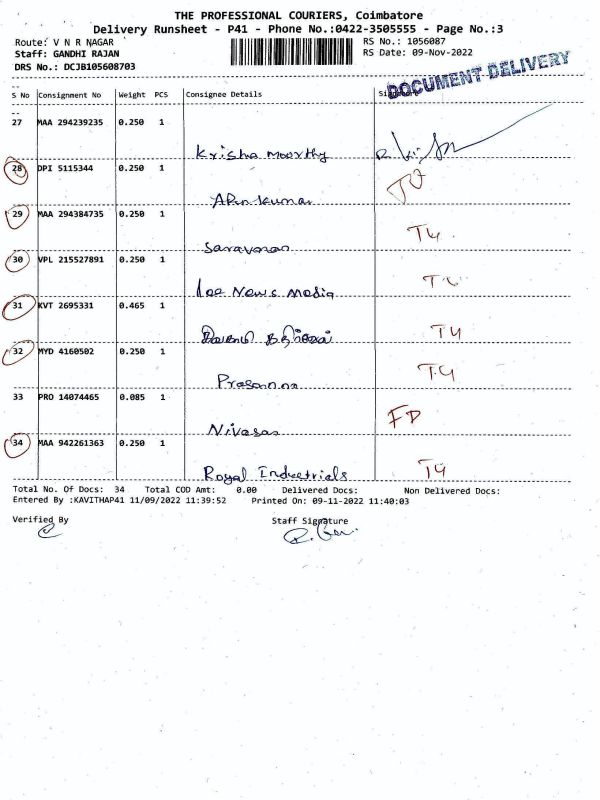 THE PROFESSIONAL COURIERS, Coimbatore
Delivery Runsheet - P41 - Phone No.:0422-3505555 - Page No.:3
Route: V N R NAGAR
RS No.: 1056087
Staff: GANDHI RAJAN
RS Date: 09-Nov-2022
DRS No.: DCJB105608703
DOCUMENT DELIVERY
S No Consignment No Weight PCS Consignee Details
27 MAA 294239235 0.250 1
Krisha moorthy
28 DPI 5115344 0.250 1
Arun kumar
29 MAA 294384735 0.250 1 T4
Saravanan
30 VPL 215527891 0.250 1
Lee News Media
31 KVT 2695331 0.465 1 T4
32 MYD 4160502 0.250 1 T4
Prasanna
33 PRO 14074465 0.085 1 FD
Nivasan
34 MAA 942261363 0.250 1
Royal Industrials T4
Total No. Of Docs: 34 Total COD Amt: 0.00 Delivered Docs: Non Delivered Docs:
Entered By :KAVITHAP41 11/09/2022 11:39:52 Printed On: 09-11-2022 11:40:03
Verified By Staff Signature